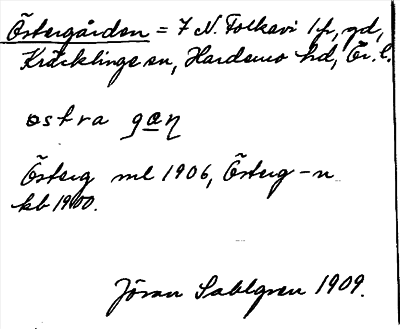 Östergården = 7 N. Folkavi 1/1, gd,
Kräcklinge sn, Hardemo hd, Ör. l.
östra gæŋ
Österg ml 1906, Österg-n
kb 1900.
Jöran Sahlgren 1909.